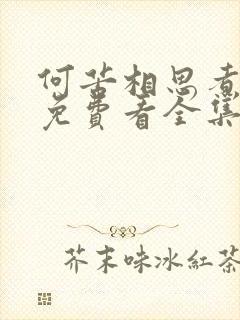 何苦相思煮
免費看全集
芥末味冰紅茶